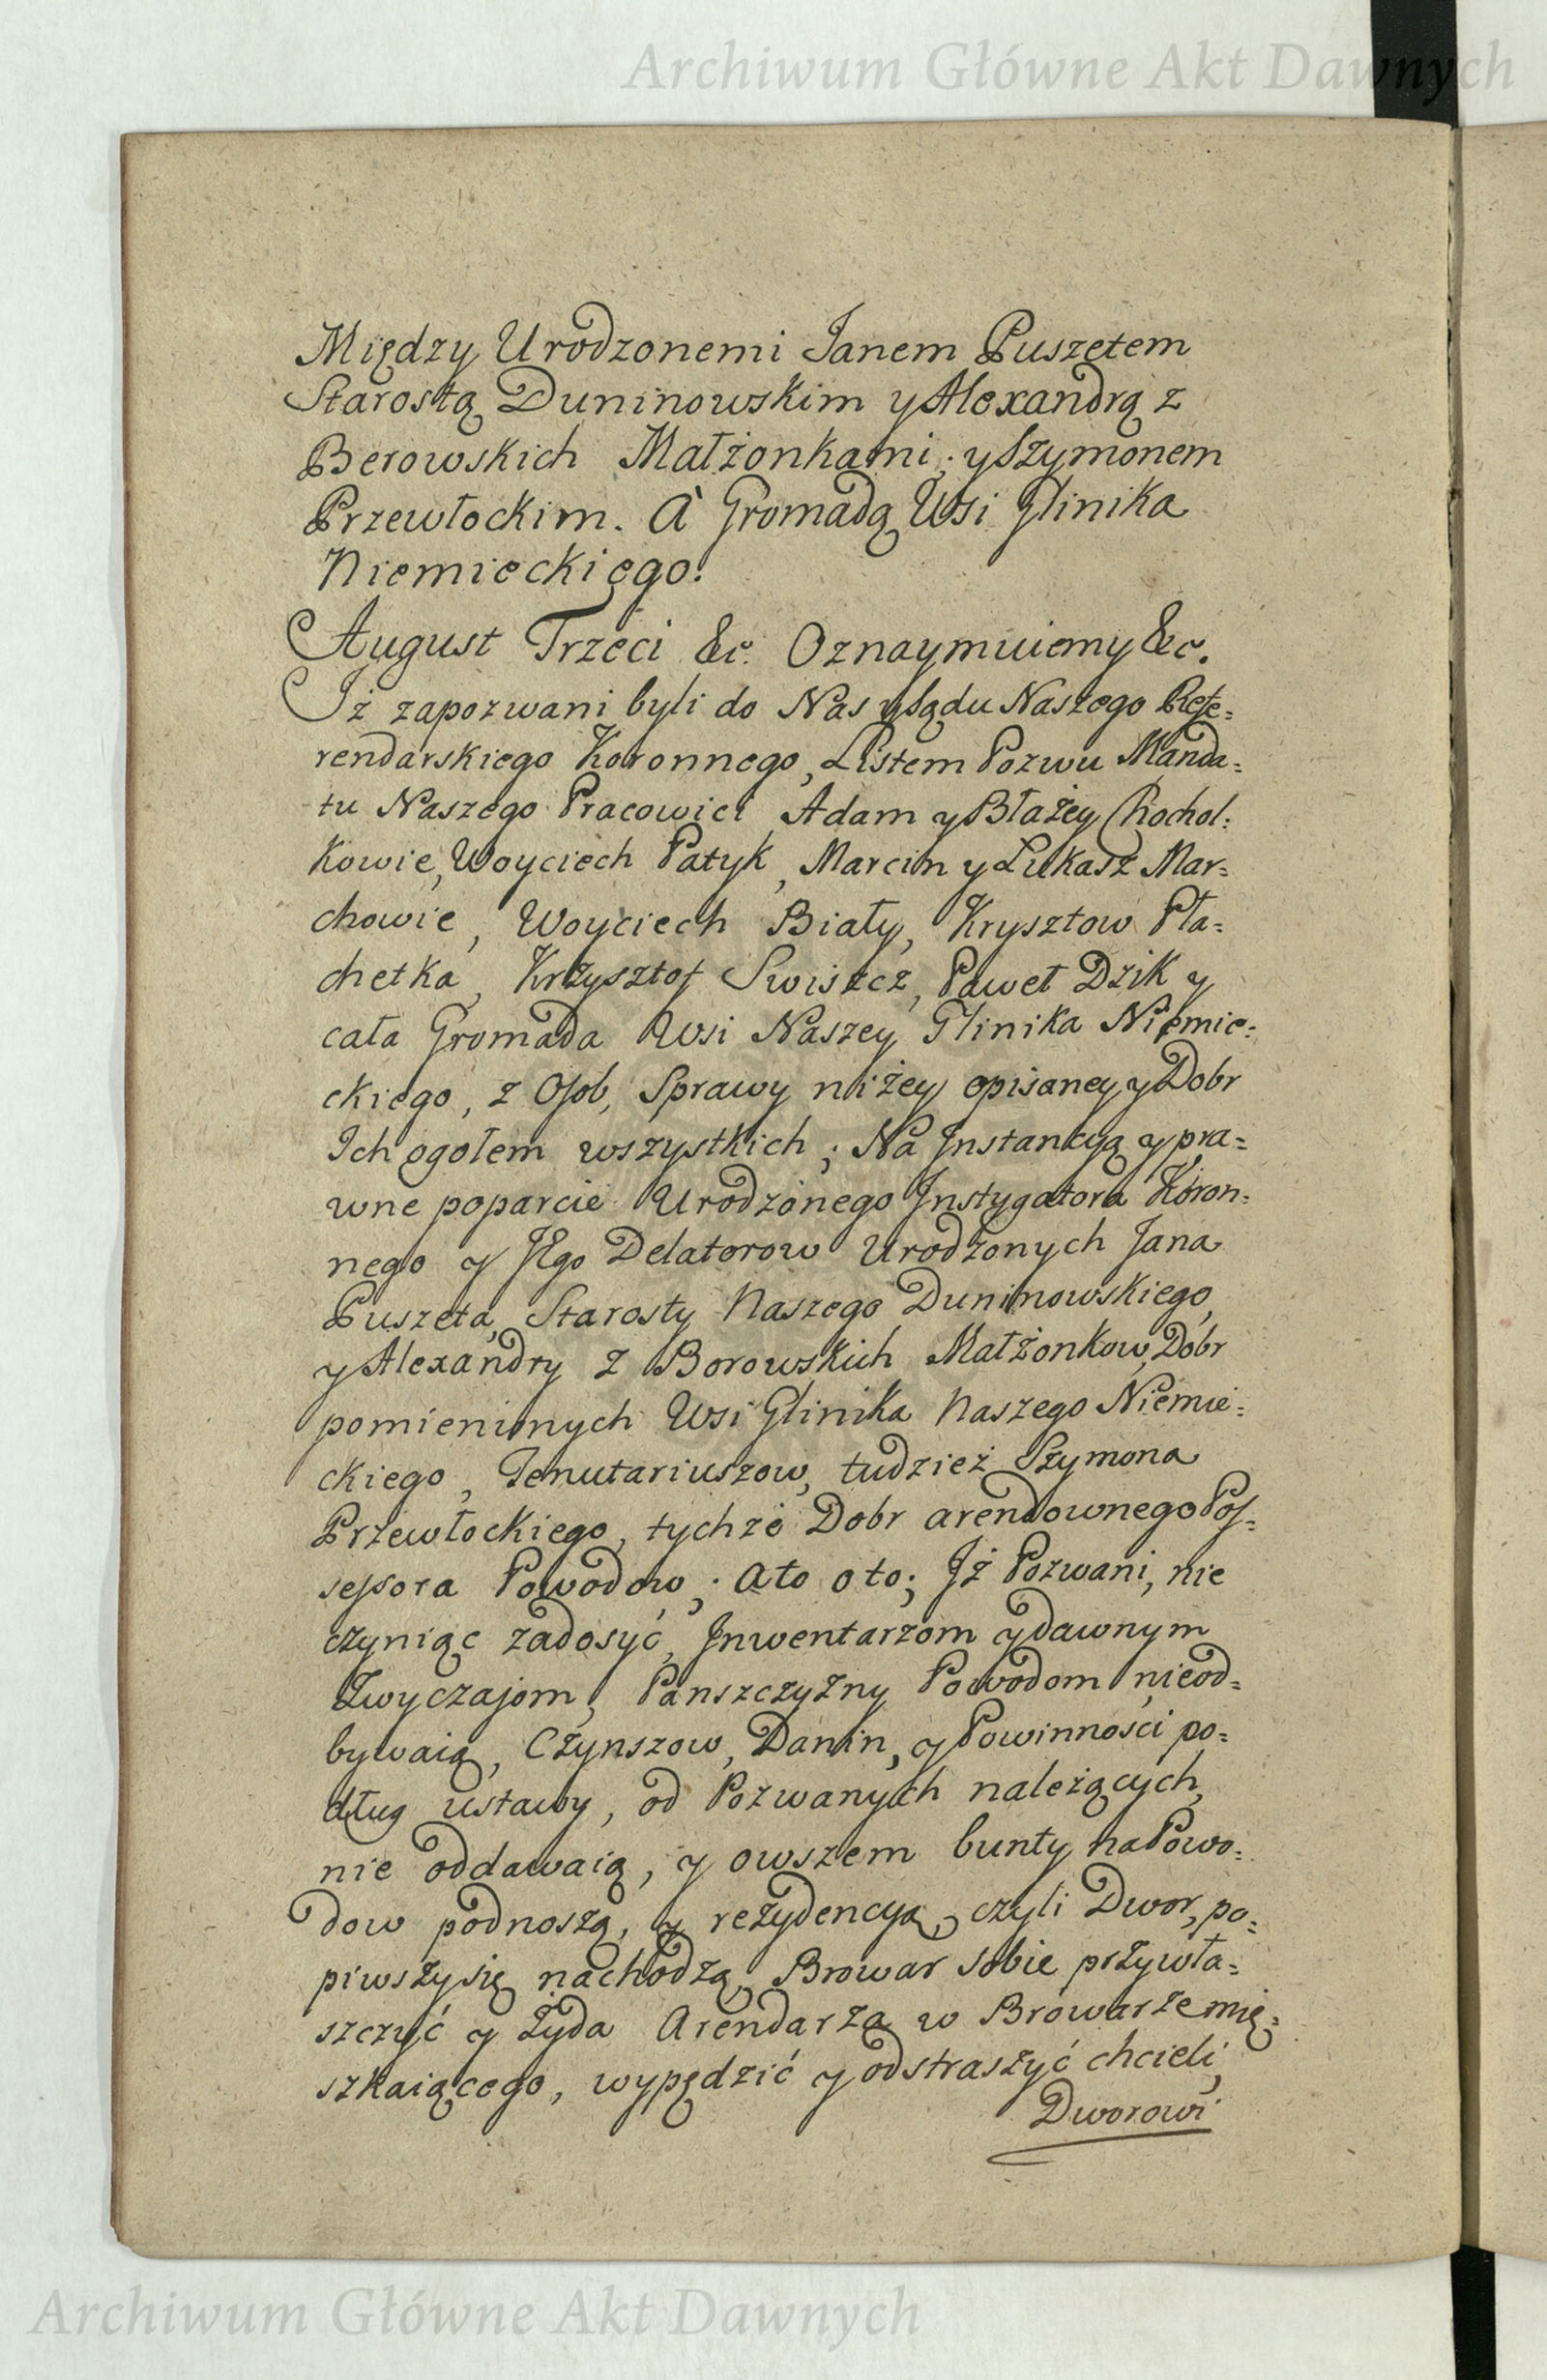 Archiwum Główne Akt Dawnych
Między Urodzonemi Janem Puszetem
Starostą Duninowskim y Alexandrą z
Berowskich Małżonkami; y Szymonem
Przewłockim. à Gromadą Wsi Glinika
Niemieckiego.
August Trzeci &c. Oznaymuiemy &c.
Jż zapozwani byli do Nas y Sądu Naszego Refe=
rendarskiego Koronnego, Listem Pozwu Manda=
tu Naszego Pracowici Adam y Błażey Chochol=
kowie, Woyciech Patyk, Marcin y Łukasz Mar=
chowie, Woyciech Biały, Krysztow Pła=
chetka, Krzysztof Swiszcz, Paweł Dzik y
cała Gromada Wsi Naszey Glinika Niemie=
ckiego, z Osob, Sprawy niżey opisaney y Dobr
Ich ogołem wszystkich; Na Jnstancyą y pra=
wne poparcie Urodzonego Jnstygatora Koron=
nego y JEgo Delatorow Urodzonych Jana
Puszeta, Starosty Naszego Duninowskiego,
y Alexandry z Borowskich Małżonkow, Dobr
pomienionych Wsi Glinika Naszego Niemie=
ckiego, Tenutariuszow, tudzież Szymona
Przewłockiego, tychże Dobr arendownego Pos=
sessora Powodow; Ato oto; Jż Pozwani, nie
czyniąc zadosyć, Jnwentarzom y dawnym
Zwyczajom, Panszczyzny Powodom nieod=
bywaią, Czynszow, Danin, y Powinności po=
dług ustawy, od Pozwanych należących,
nie oddawaią, y owszem bunty na Powo=
dow podnoszą, y rezydencyą, czyli Dwor, po=
piwszysię nachodzą, Browar sobie przywła=
szczyć y Żyda Arendarza w Browarze mię=
szkaiącego, wypędzić y odstraszyć chcieli,
Dworowi
Archiwum Główne Akt Dawnych